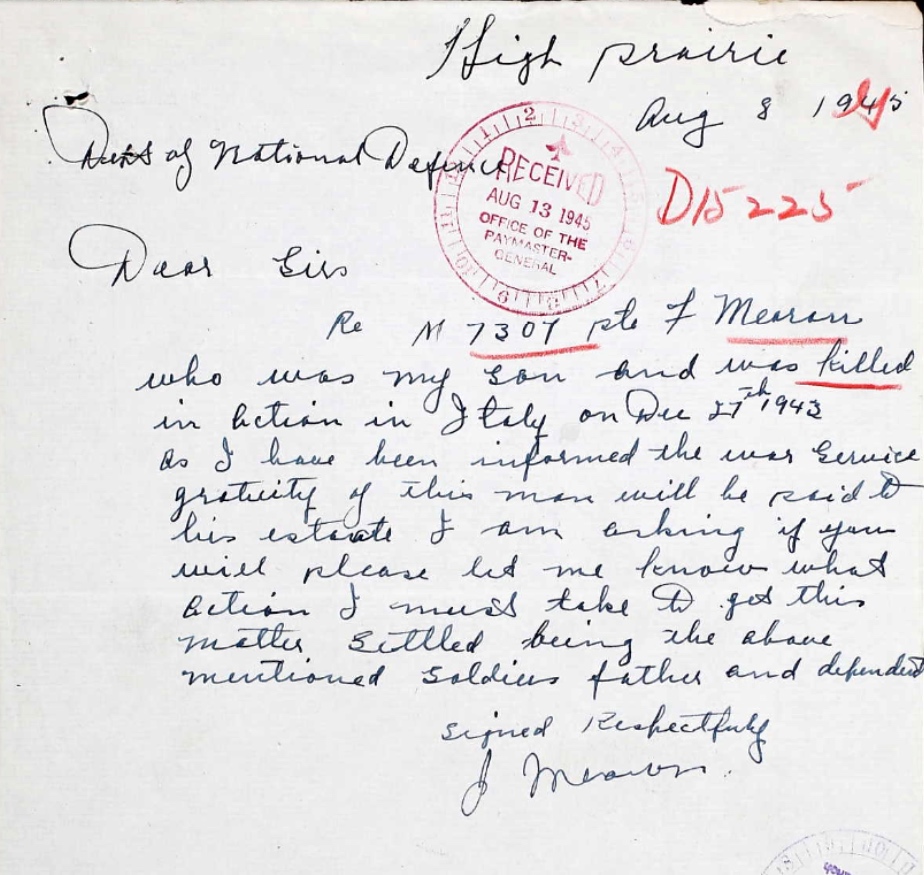 High prairie
Aug 8 1945
Dept of National Defence
RECEIVED
AUG 13 1945
OFFICE OF THE
PAYMASTER-
GENERAL
D15225
Dear Sirs
Re M 7307 pte F Mearon
who was my son and was killed
in action in Italy on Dec 27th 1943
as I have been informed the war service
gratuity of this man will be paid to
his estate I am asking if you
will please let me know what
action I must take to get this
matter settled being the above
mentioned soldiers father and dependent
signed Respectfuly
J Mearon.